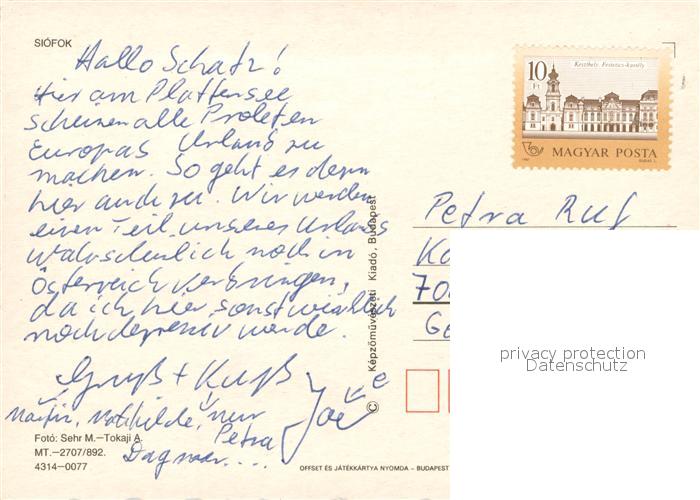 SIÓFOK
Hallo Schatz!
Hier am Plattensee
scheinen alle Proleten
Europas Urlaub zu
machen. So geht es denn
hier auch zu. Wir werden
einen Teil unseres Urlaubs
wahrscheinlich noch in
Österreich verbringen,
da ich hier sonst wirklich
noch depressiv werde.
Gruß + Kuß
Mathilde, nur
Petra
Dagmar....
Foto: Sehr M.–Tokaji A.
MT.–2707/892.
4314–0077
© Képzőművészeti Kiadó, Budapest
OFFSET ÉS JÁTÉKKÁRTYA NYOMDA – BUDAPEST
10 Ft
Keszthely, Festetics-kastély
MAGYAR POSTA
Petra Ruf
privacy protection
Datenschutz